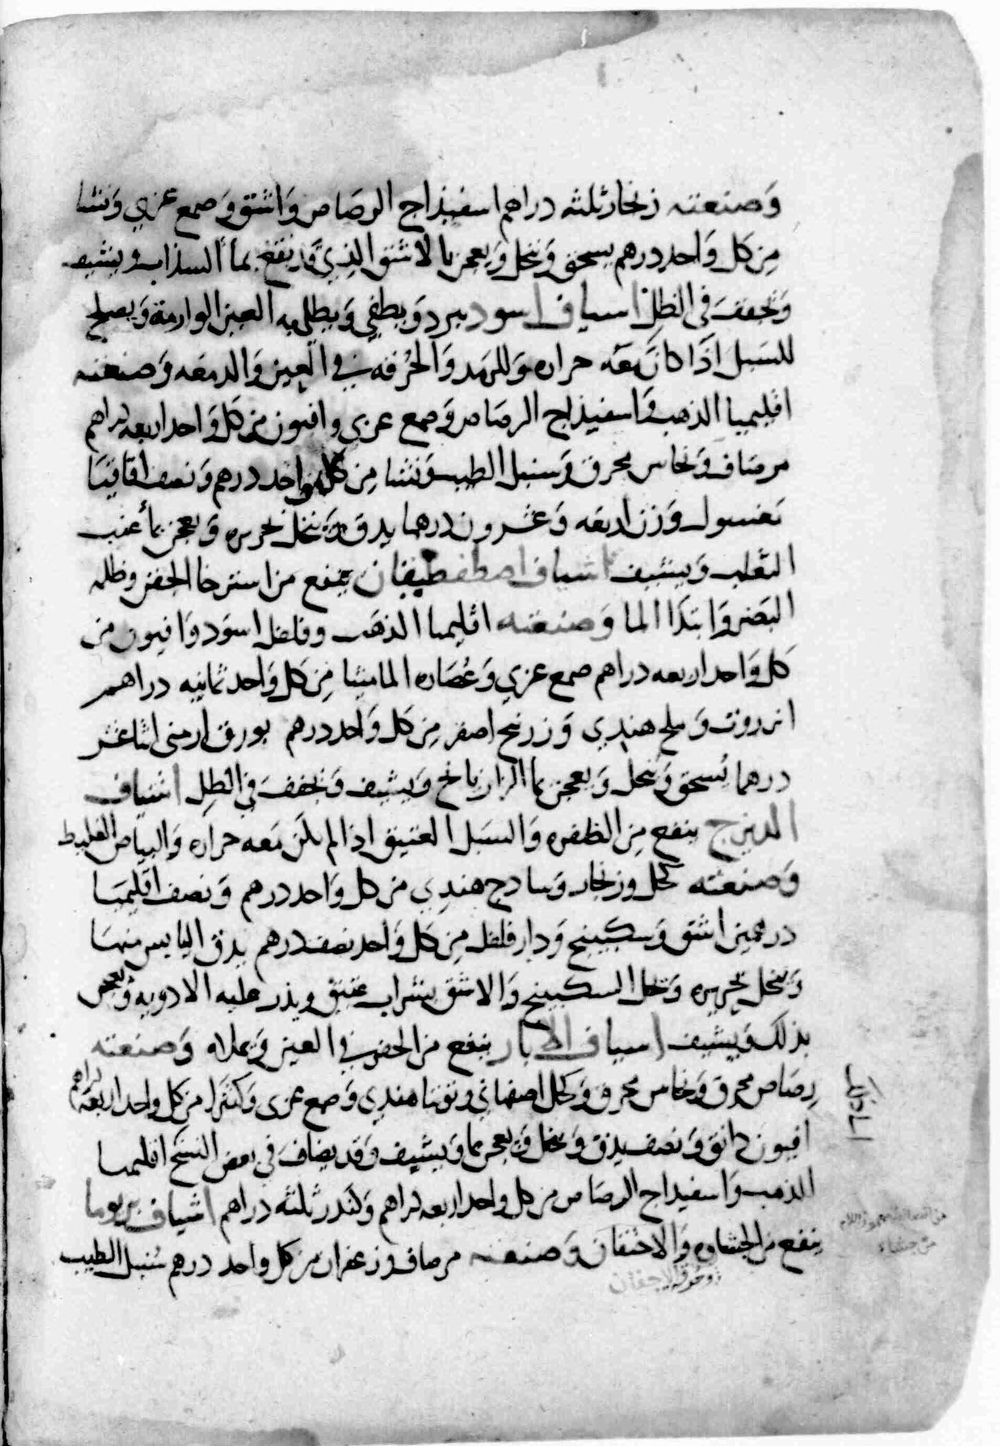 وصنعته زنجار ثلثه دراهم اسفيذاج الرصاص واشق وصمع عربي ونشا
من كل واحد درهم يسحق وينخل ويعجن بالاشق الذي قد نقع بماء السذاب ويشيف
ويجفف في الظل اسياف اسود يبرد ويطفي ويطلى به العين الوارمة ويصلح
للسبل اذا كان معه حراره وللرمد والحرقه في العين والدمعه وصنعته
اقليميا الذهب واسفيذاج الرصاص وصمع عربي وافيون من كل واحد اربعه دراهم
مر صاف ونحاس محرق وسنبل الطيب ونشا من كل واحد درهم ونصف اقاقيا
مغسول وزن اربعه وعشرون درهما يدق وينخل بحريره ويعجن بماء عنب
الثعلب ويشيف اشياف اصطفطيقان ينفع من استرخا الجفن وظلمه
البصر وابتدا الما وصنعته اقليميا الذهب وفلفل اسود وافيون من
كل واحد اربعه دراهم صمع عربي وعصاره المامیثا من كل واحد ثمانيه دراهم
انزروت وملح هندي وزرنيخ اصفر من كل واحد درهم بورق ارمني اثنا عشر
درهما يسحق وينخل ويعجن بما الرازيانج ويشيف ويجفف في الظل اشياف
الديزج ينفع من الظفره والسبل العتيق اذا لم يكن معه حراره والبياض الغليظ
وصنعته كحل وزنجار وسادج هندي من كل واحد درهم ونصف اقليميا
درهمين اشق وسكبينج ودار فلفل من كل واحد نصف درهم يدق اليابس منها
وينخل بحريره ويحل السكبينج والاشق بشراب عتيق ويذر عليه الادويه ويعجن
بذلك ويشيف اسياف الابار ينفع من الحفر في العين ويملاه وصنعته
رصاص محرق ونحاس محرق وكحل اصفهاني وتوتيا هندي وصمع عربي وكثيرا من كل واحد اربعه دراهم
افيون دانق ونصف يدق وينخل ويعجن بما ويشيف وقد يضاف في بعض النسخ اقليميا
الذهب واسفيداج الرصاص من كل واحد اربعه دراهم وكندر ثلثه دراهم اشياف
ينفع من الجشاوه والاحتقان وصنعته مر صاف وزعفران من كل واحد درهم سنبل الطيب
وحرقة الاجفان